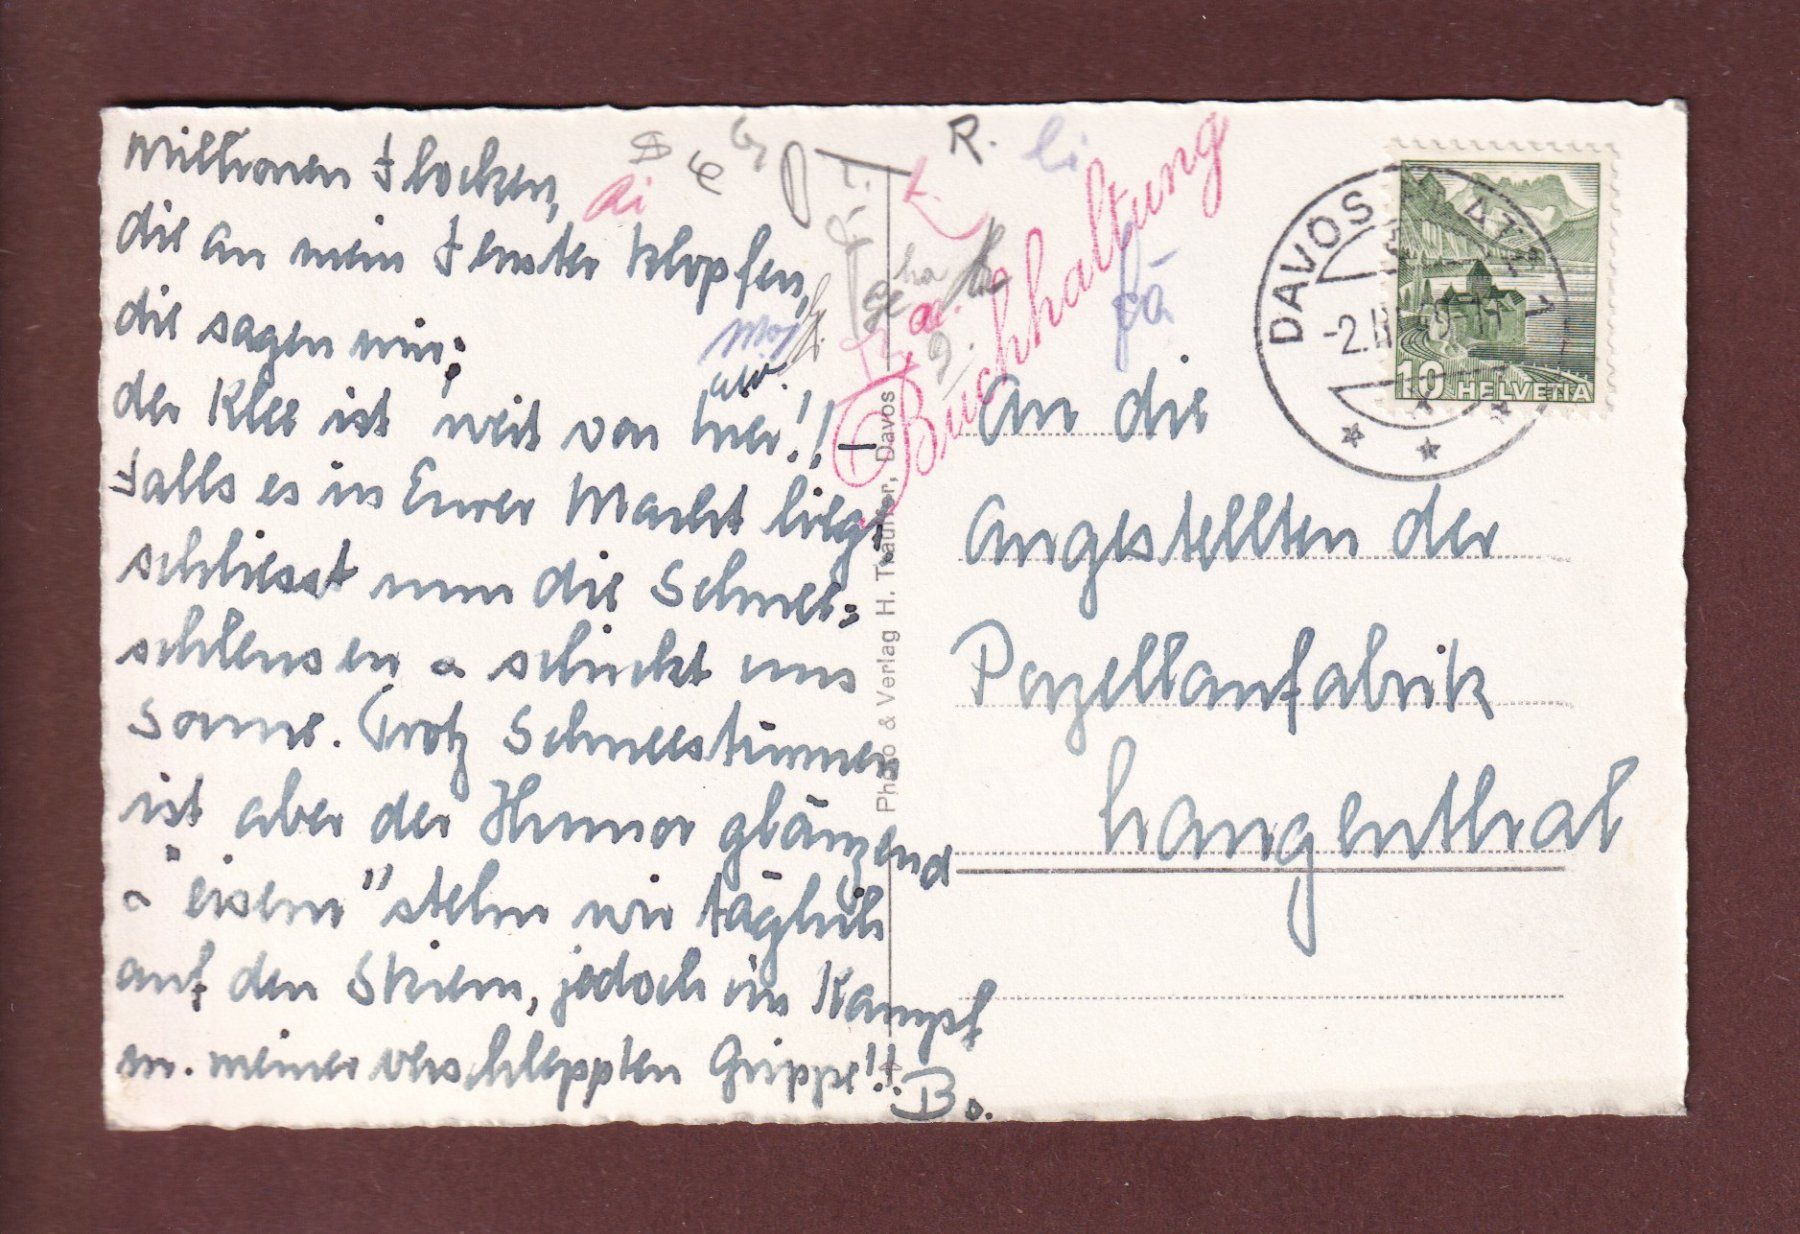 Millionen Flocken,
die an mein Fenster klopfen,
die sagen mir:
der Klee ist weit von hier!!
Falls es in Eurer Macht liegt
schliesst nun die Schnee=
schleusen & schickt uns
Sonne. Trotz Schneestürmen
ist aber der Humor glänzend
& "eisern" stehn wir täglich
auf den Skiern, jedoch im Kampf
m. meiner verschleppten Grippe!!
Bo.
R.
li
Buchhaltung
fä
Photo & Verlag H. Tauffer, Davos
DAVOS PLATZ 1
10 HELVETIA
An die
Angestellten der
Porzellanfabrik
Langenthal